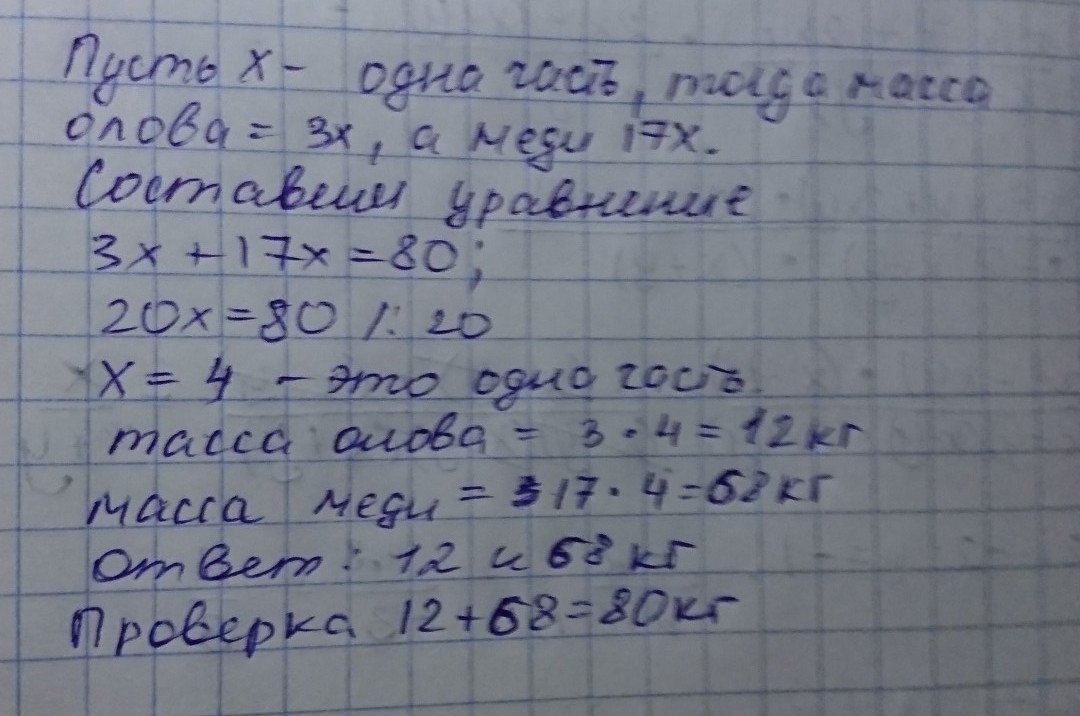 Пусть х - одна часть, тогда масса
олова = 3х, а меди 17х.
Составим уравнение
3х + 17х = 80;
20х = 80 /: 20
х = 4 - это одна часть.
масса олова = 3 · 4 = 12 кг
масса меди = 17 · 4 = 68 кг
ответ: 12 и 68 кг
Проверка 12 + 68 = 80 кг